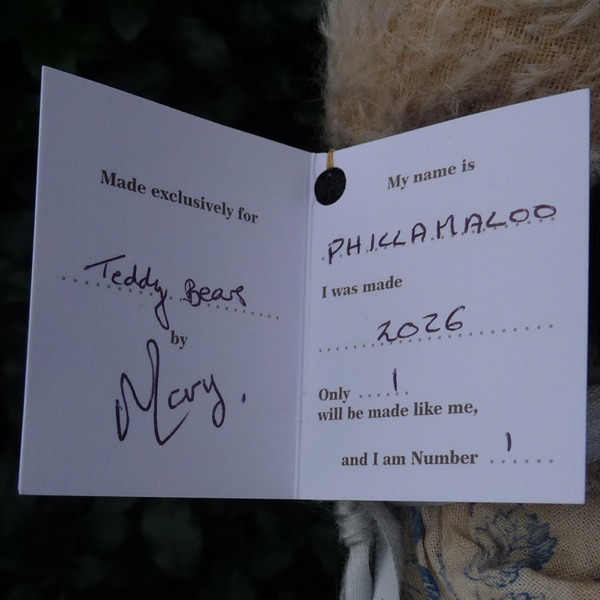 Made exclusively for
Teddy Bears
by
Mary.
My name is
PHILLAMALOO
I was made
2026
Only 1
will be made like me,
and I am Number 1